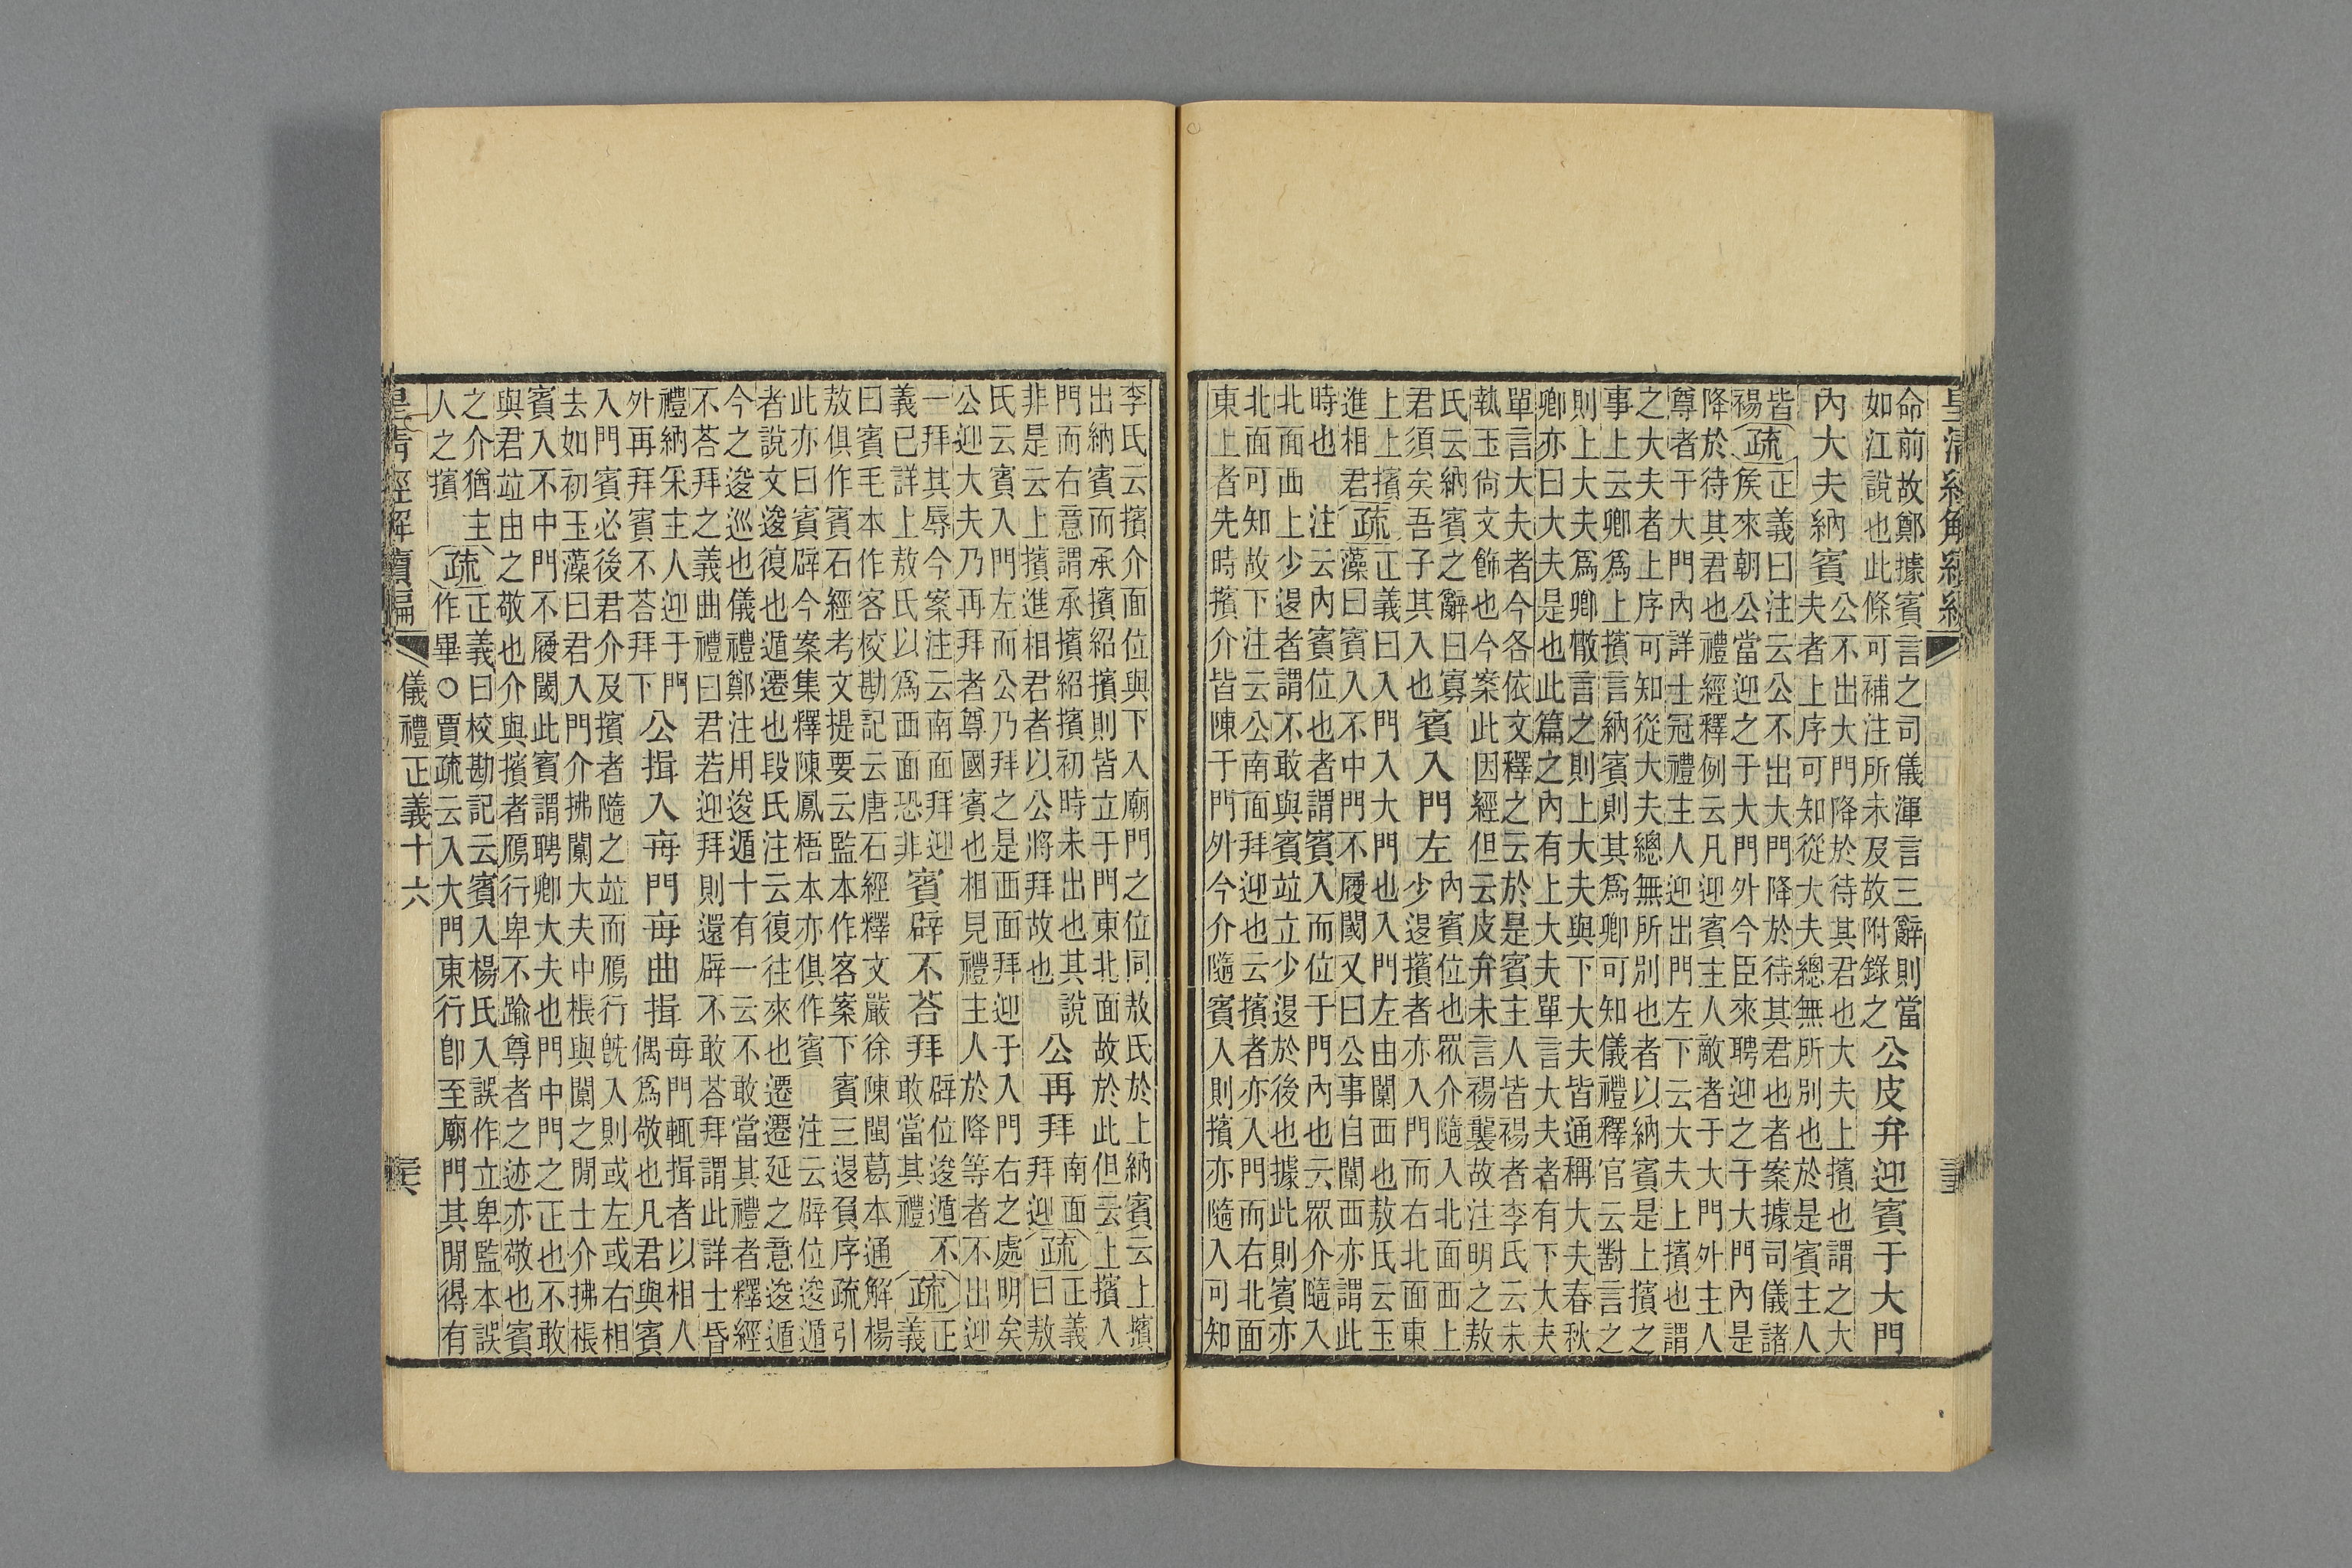 皇清經解續編
命前故鄭據賓言之司儀渾言三辭則當
如江說也此條可補注所未及故附錄之
公皮弁迎賓于大門
內大夫納賓
公不出大門降於待其君也大夫上擯也謂之大
夫者上序可知從大夫總無所別也於是賓主人
皆
裼
疏
正義曰注云公不出大門降於待其君也者案據司儀諸
矦來朝公當迎之于大門外今臣來聘迎之于大門內是
降於待其君也禮經釋例云凡迎賓主人敵者于大門外主人
尊者于大門內詳士冠禮主人迎出門左下云大夫上擯也謂
之大夫者上序可知從大夫總無所別也者以納賓是上擯之
事上云卿爲上擯言納賓則其爲卿可知儀禮釋官云對言之
則上大夫爲卿散言之則上大夫與下大夫皆通稱大夫春秋
卿亦曰大夫是也此篇之內有上大夫單言大夫者有下大夫
單言大夫者今各依文釋之云於是賓主人皆裼者李氏云未
執玉尙文飾也今案此因經但云皮弁未言裼襲故注明之敖
氏云納賓之辭曰寡
君須矣吾子其入也
賓入門左
內賓位也眾介隨入北面西上
少退擯者亦入門而右北面東
上上擯
進相君
疏
正義曰入門入大門也入門左由闑西也敖氏云玉
藻曰賓入不中門不履閾又曰公事自闑西亦謂此
時也 注云內賓位也者謂賓入而位于門內也云眾介隨入
北面西上少退者謂不敢與賓竝立少退於後也據此則賓亦
北面可知故下注云公南面拜迎也云擯者亦入門而右北面
東上者先時擯介皆陳于門外今介隨賓入則擯亦隨入可知
李氏云擯介面位與下入廟門之位同敖氏於上納賓云上擯
出納賓而承擯紹擯則皆立于門東北面故於此但云上擯入
門而右意謂承擯紹擯初時未出也其說
非是云上擯進相君者以公將拜故也
公再拜
南面
拜迎
疏
正義
曰敖
氏云賓入門左而公乃拜之是西面拜迎于入門右之處明矣
公迎大夫乃再拜者尊國賓也相見禮主人於降等者不出迎
一拜其辱今案注云南面拜迎
義已詳上敖氏以爲西面恐非
賓辟不荅拜
辟位逡遁不
敢當其禮
疏
正
義
曰賓毛本作客校勘記云唐石經釋文嚴徐陳閩葛本通解楊
敖俱作賓石經考文提要云監本作客案下賓三退負序疏引
此亦曰賓辟今案集釋陳鳳梧本亦俱作賓 注云辟位逡遁
者說文逡復也遁遷也段氏注云復往來也遷遷延之意逡遁
今之逡巡也儀禮鄭注用逡遁十有一云不敢當其禮者釋經
不荅拜之義曲禮曰君若迎拜則還辟不敢荅拜謂此詳士昏
禮納采主人迎于門
外再拜賓不荅拜下
公揖入每門每曲揖
每門輒揖者以相人
偶爲敬也凡君與賓
入門賓必後君介及擯者隨之竝而鴈行旣入則或左或右相
去如初玉藻曰君入門介拂闑大夫中棖與闑之閒士介拂棖
賓入不中門不履閾此賓謂聘卿大夫也門中門之正也不敢
與君竝由之敬也介與擯者鴈行卑不踰尊者之迹亦敬也賓
之介猶主
人之擯
疏
正義曰校勘記云賓入楊氏入誤作立卑監本誤
作畢○賈疏云入大門東行卽至廟門其閒得有
皇清經解續編
儀禮正義十六